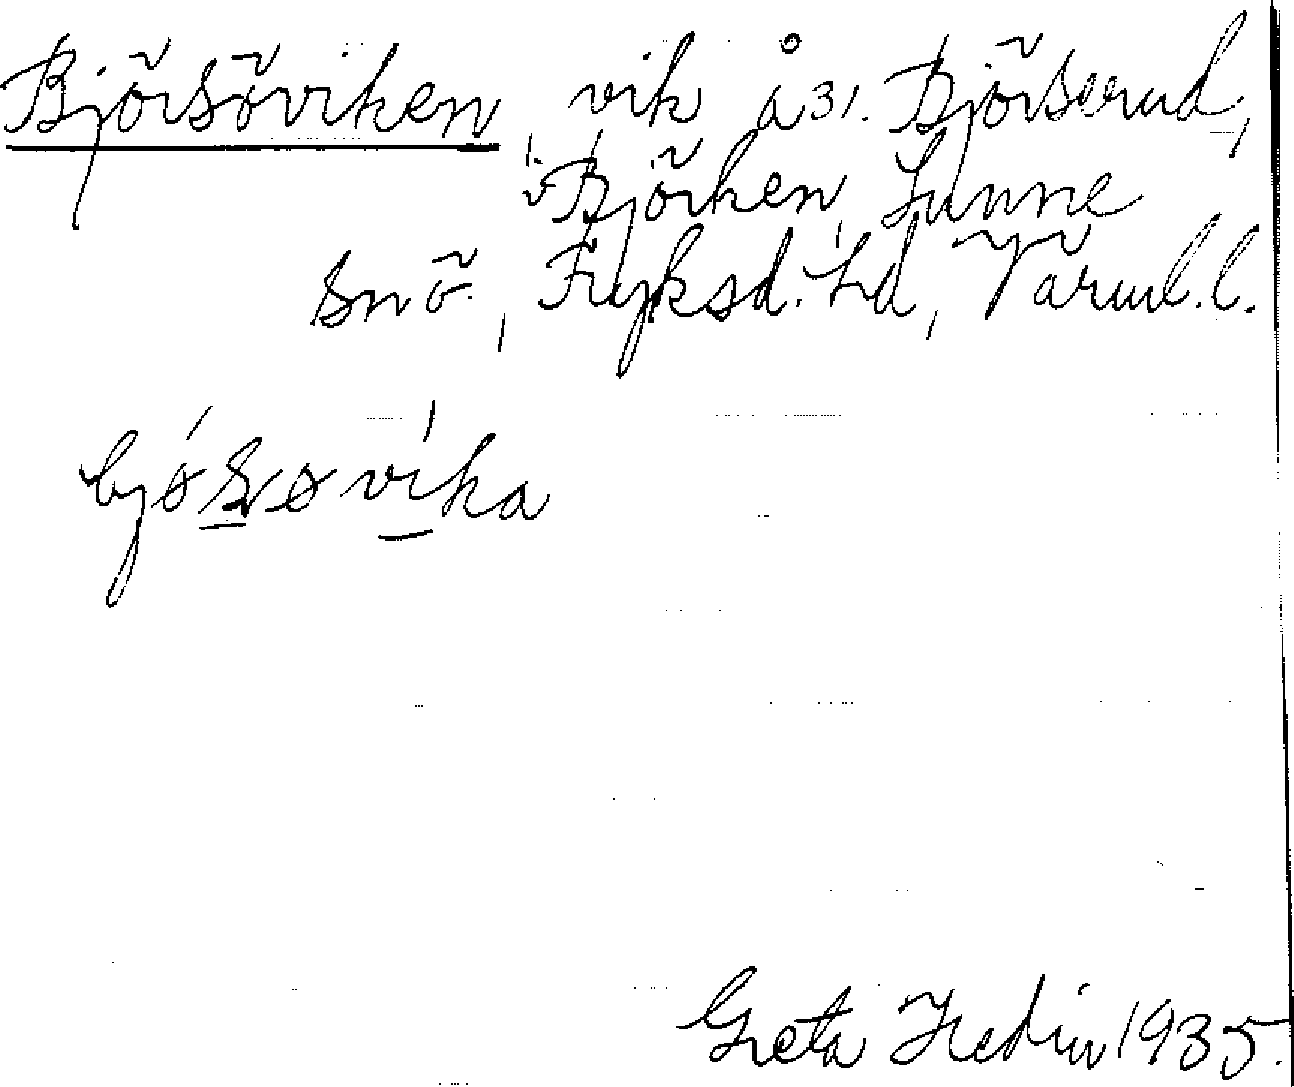 Björsöviken, vik å 31. Björserud,
i Björken, Sunne
snö, Fryksd. hd, Värml. l.
bjøsøvika
Greta Hedin 1935.